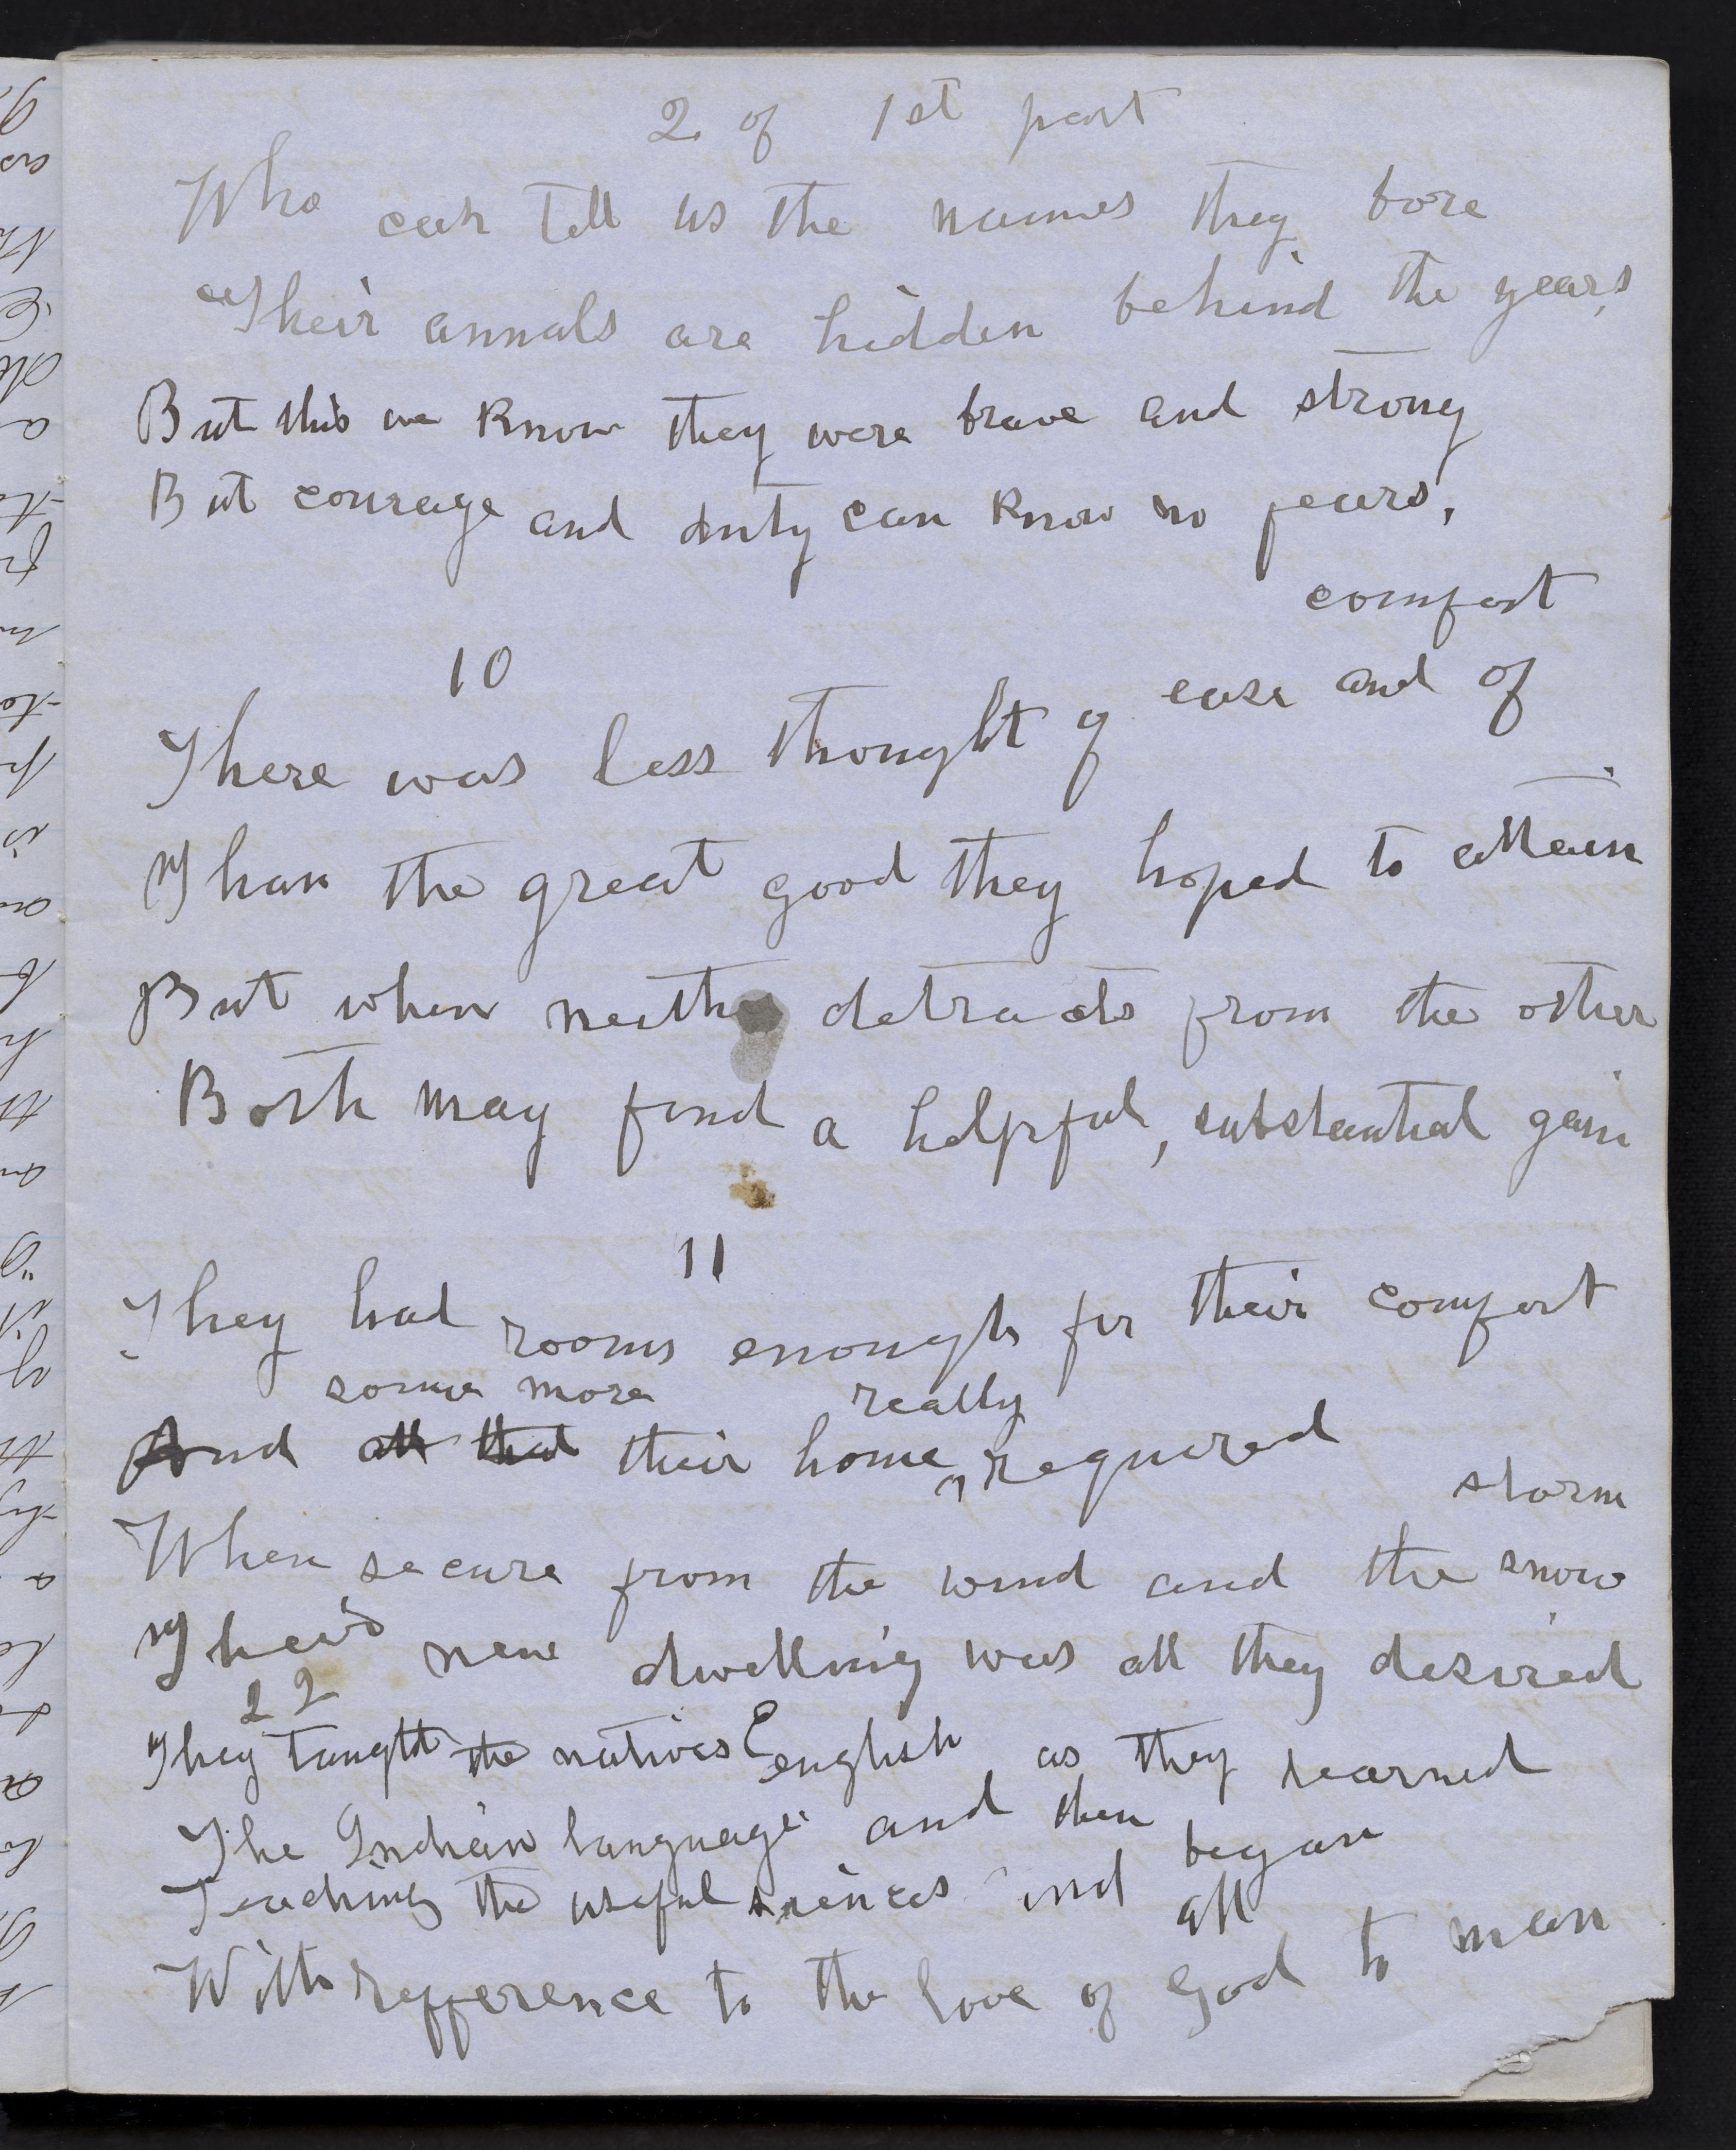 2 of 1st part
Who can tell us the names they bore
Their annals are hidden behind the years,
But this we know they were brave and strong
But courage and duty can know no fears,
10
There was less thought of ease and of comfort
Than the great good they hoped to attain
But when neither detracts from the other
Both may find a helpful, substantial gain
11
They had rooms enough for their comfort
some more really
And all that their home required
When secure from the wind and the snow storm
Their new dwelling was all they desired
22
They taught the natives English as they learned
The Indian language and then began
Teaching the useful siences and all
With refference to the love of God to man